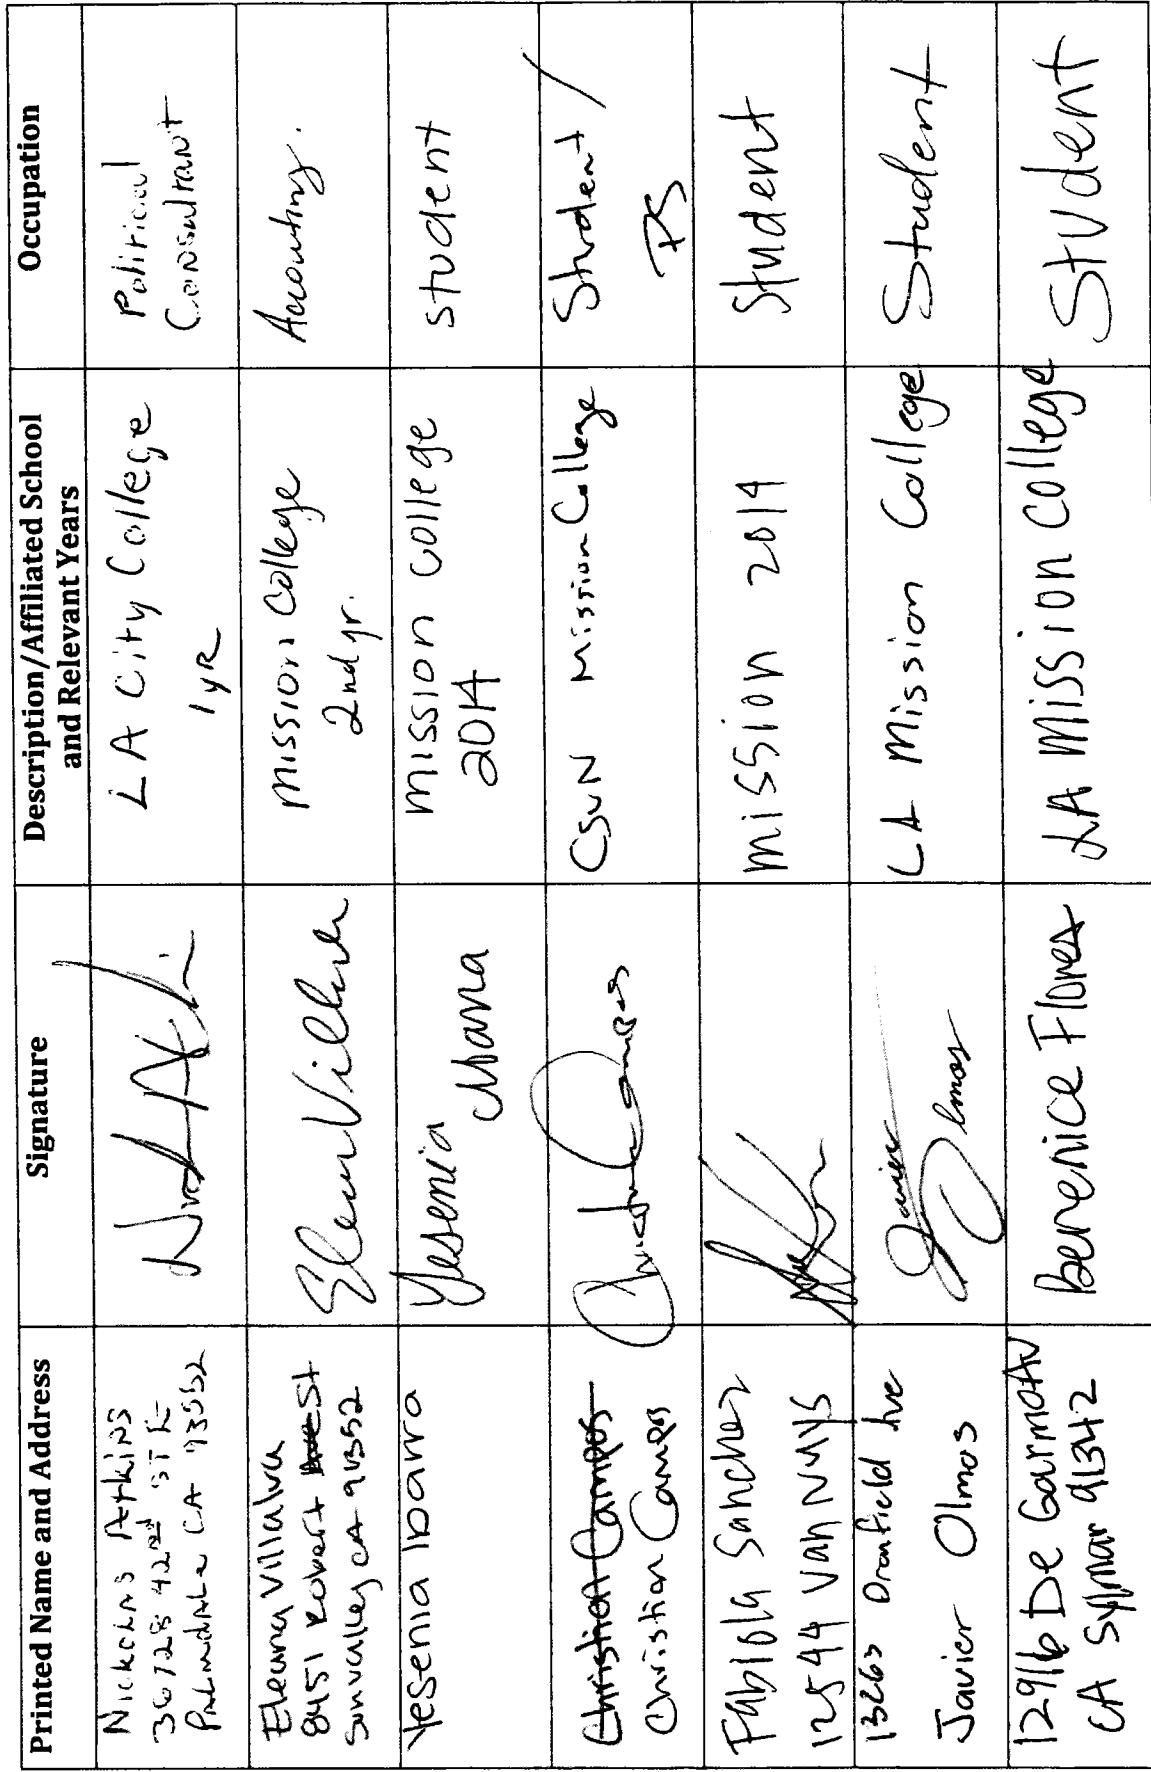 Printed Name and Address
Signature
Description/Affiliated School
and Relevant Years
Occupation
Nickolas Atkins
36728 42nd ST E
Palmdale CA 93552
LA City College
1yR
Political
Consultant
Eleana Villalva
8451 Robert St
Sunvalley CA 91352
Mission College
2nd yr.
Accounting.
Yesenia Ibarra
Yesenia
Mission College
2014
student
Christian Campos
Christian Campos
CSUN Mission College
Student /
Fabiola Sanchez
12544 Van Nuys
Mission 2014
Student
13263 Dronfield Ave
Javier Olmos
Javier
Olmos
LA Mission College
Student
12916 De Garmo Av
CA Sylmar 91342
Berenice Flores
LA Mission College
Student